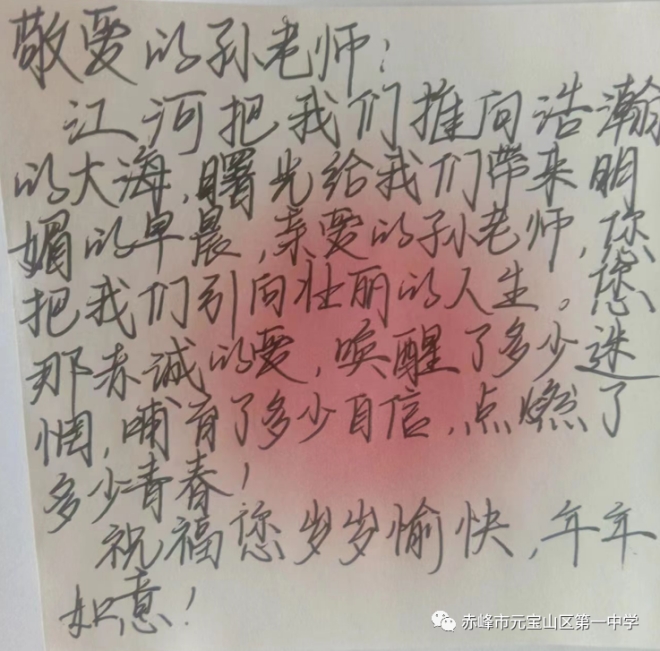 敬爱的孙老师：
江河把我们推向浩瀚
的大海，曙光给我们带来明
媚的早晨，亲爱的孙老师，您
把我们引向壮丽的人生。您
那赤诚的爱，唤醒了多少迷
惘，哺育了多少自信，点燃了
多少青春！
祝福您岁岁愉快，年年
如意！
赤峰市元宝山区第一中学